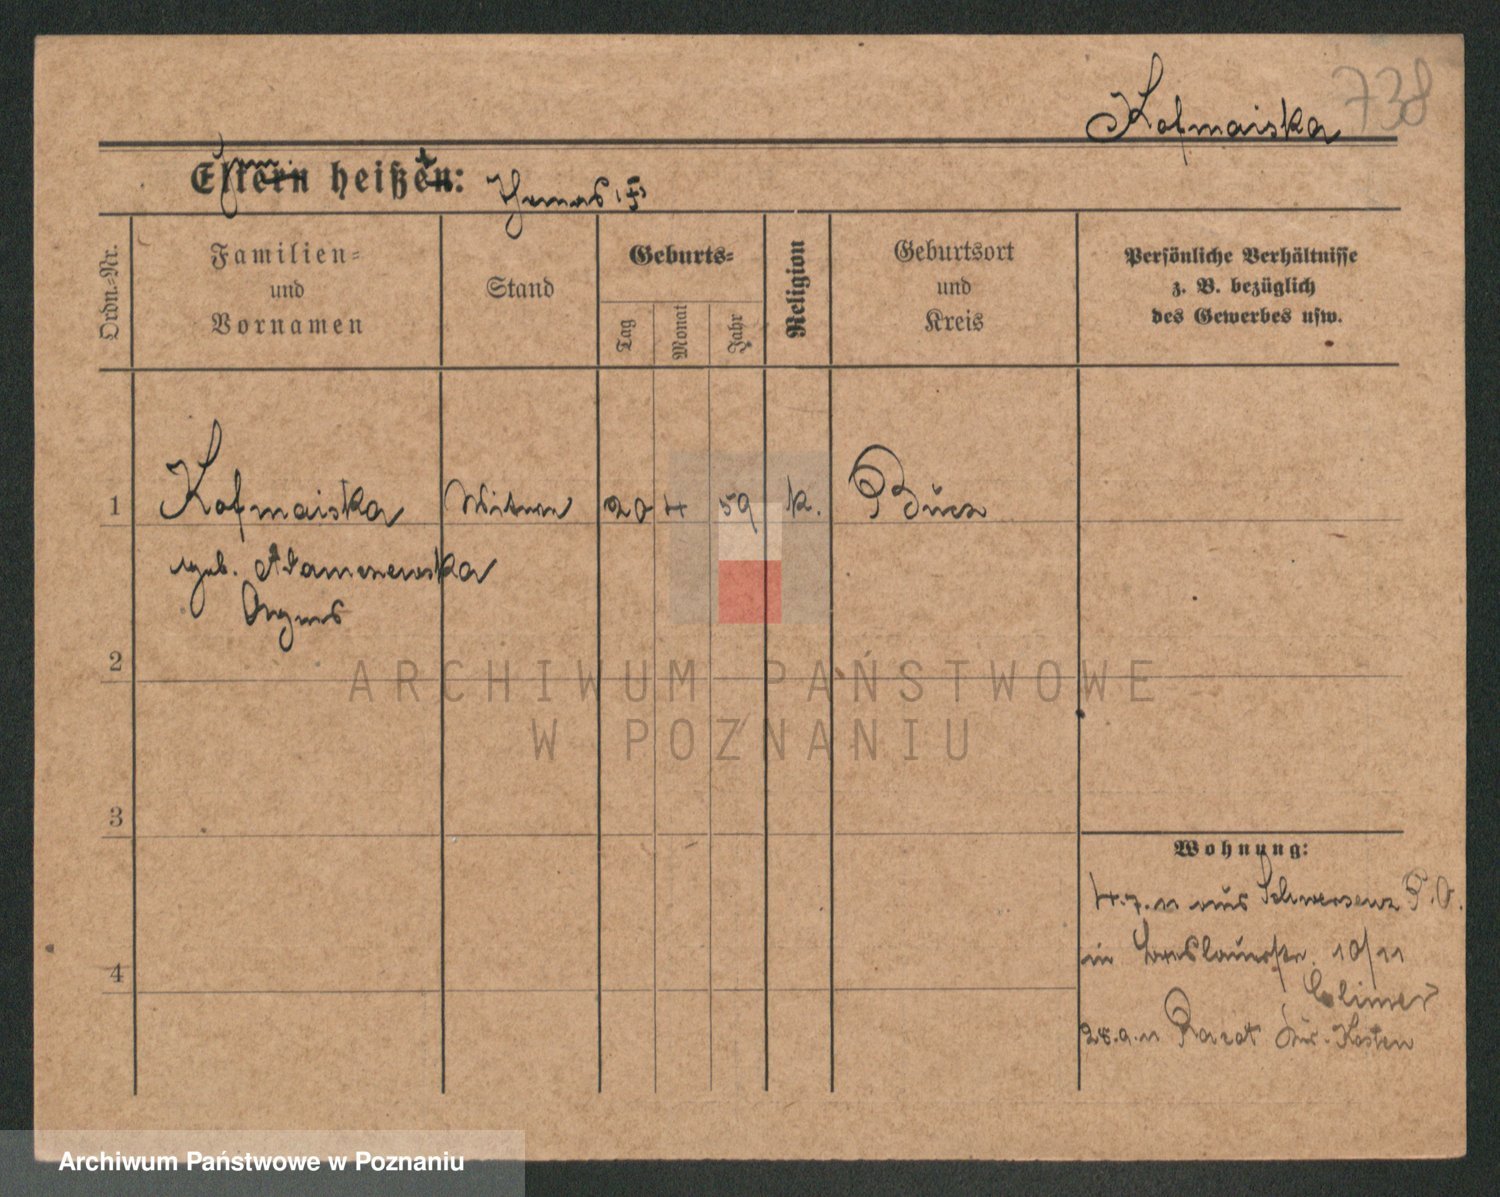 738
Kofmaiska
Eltern heißen: Thomas
Ordn.-Nr.
Familien-
und
Vornamen
Stand
Geburts-
Tag
Monat
Jahr
Religion
Geburtsort
und
Kreis
Persönliche Verhältnisse
z. B. bezüglich
des Gewerbes usw.
1 Kofmaiska Witwe 20 4 59 k. Bucz
geb. Adamczewska
Agnes
2
3
4
Wohnung:
4.7.11 aus Schwersenz P.O.
in Breslauerstr. 10/11
28.9.11 Kr. Kosten
ARCHIWUM PAŃSTWOWE
W POZNANIU
Archiwum Państwowe w Poznaniu